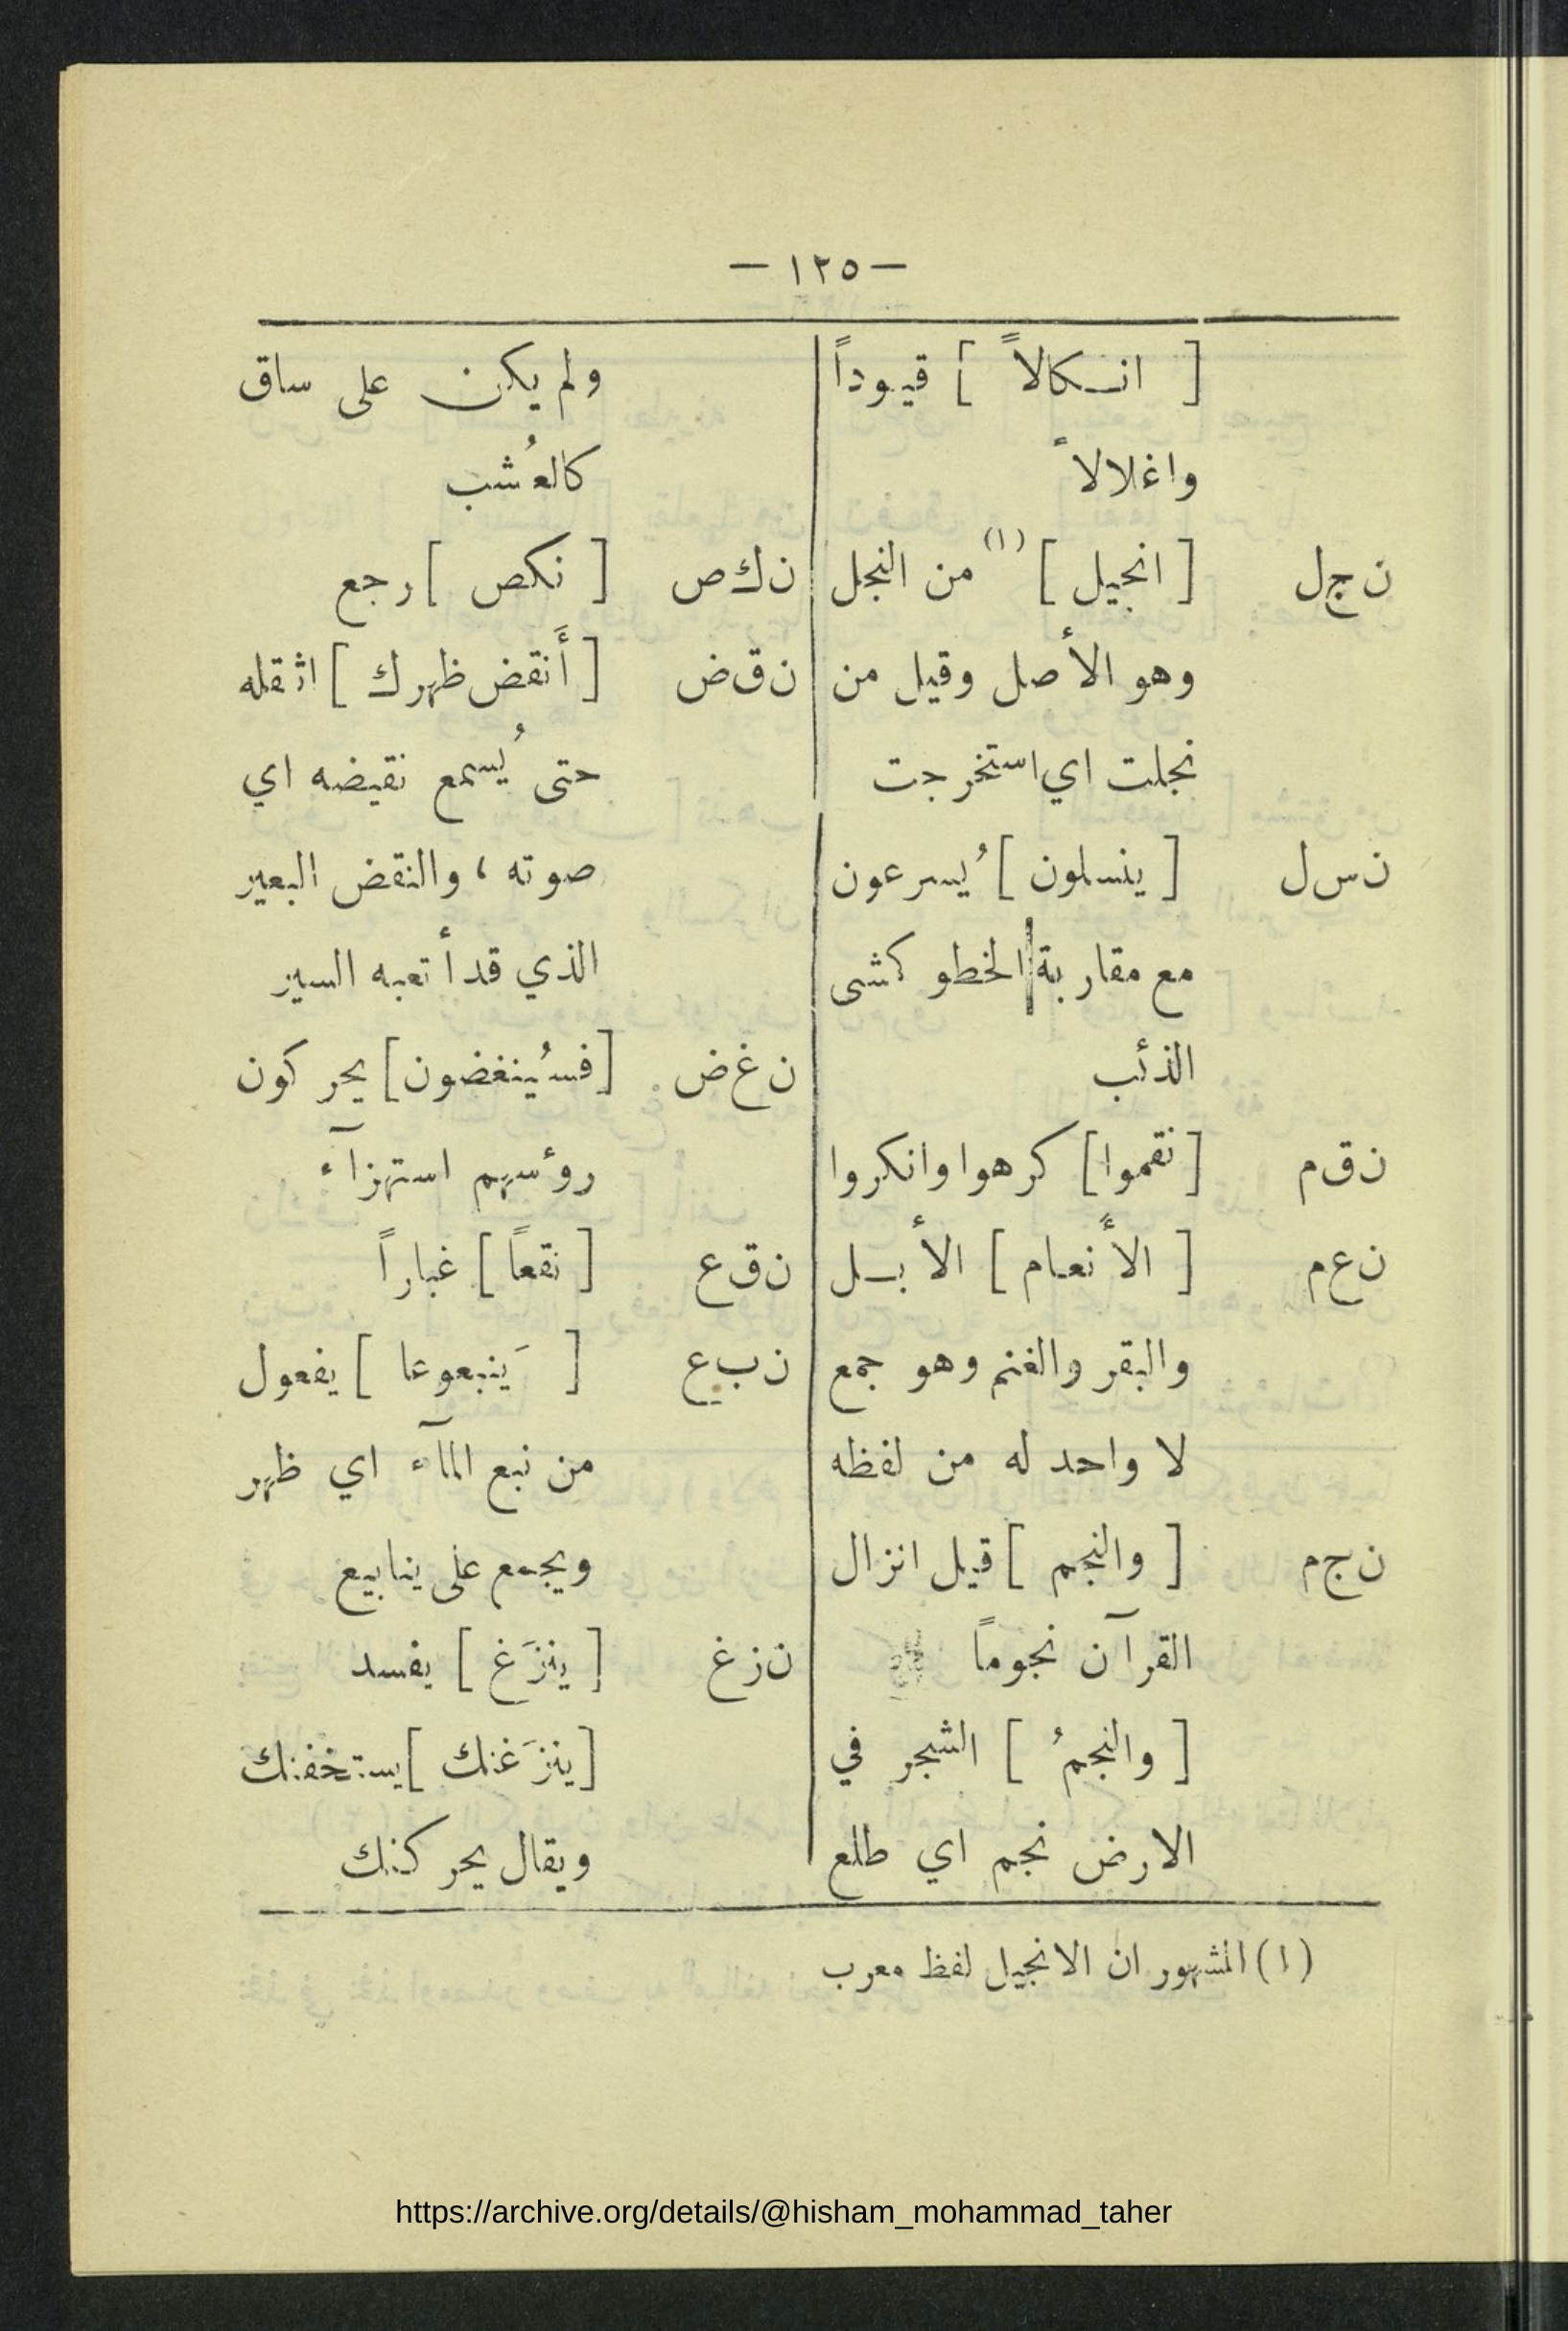 — ١٢٥ —
[ انـكالاً ] قيـوداً
واغلالاً
ن ج ل [ انجيل ] (١) من النجل
وهو الأصل وقيل من
نجلت اي استخرجت
ن س ل [ ينسلون ] يُسرعون
مع مقاربة الخطو كمشى
الذئب
ن ق م [ نقموا ] كرهوا وانكروا
ن ع م [ الأنعام ] الأبـل
والبقر والغنم وهو جمع
لا واحد له من لفظه
ن ج م [ والنجم ] قيل انزال
القرآن نجوماً
[ والنجمُ ] الشجر في
الارض نجم اي طلع
ولم يكن على ساق
كالعُشب
ن ك ص [ نكص ] رجع
ن ق ض [ أَنقض ظهرك ] اثقله
حتى يُسمع نقيضه اي
صوته ، والنقض البعير
الذي قد أتعبه السير
ن غ ض [ فسيُنغضون ] يحركون
روؤسهم استهزآء
ن ق ع [ نقعاً ] غباراً
ن ب ع [ يَنبعوعا ] يفعول
من نبع المآء اي ظهر
ويجمع على ينابيع
ن ز غ [ ينزَغ ] يفسد
[ ينزَغنك ] يستخفنك
ويقال يحركنك
(١) المشهور ان الانجيل لفظ معرب
https://archive.org/details/@hisham_mohammad_taher